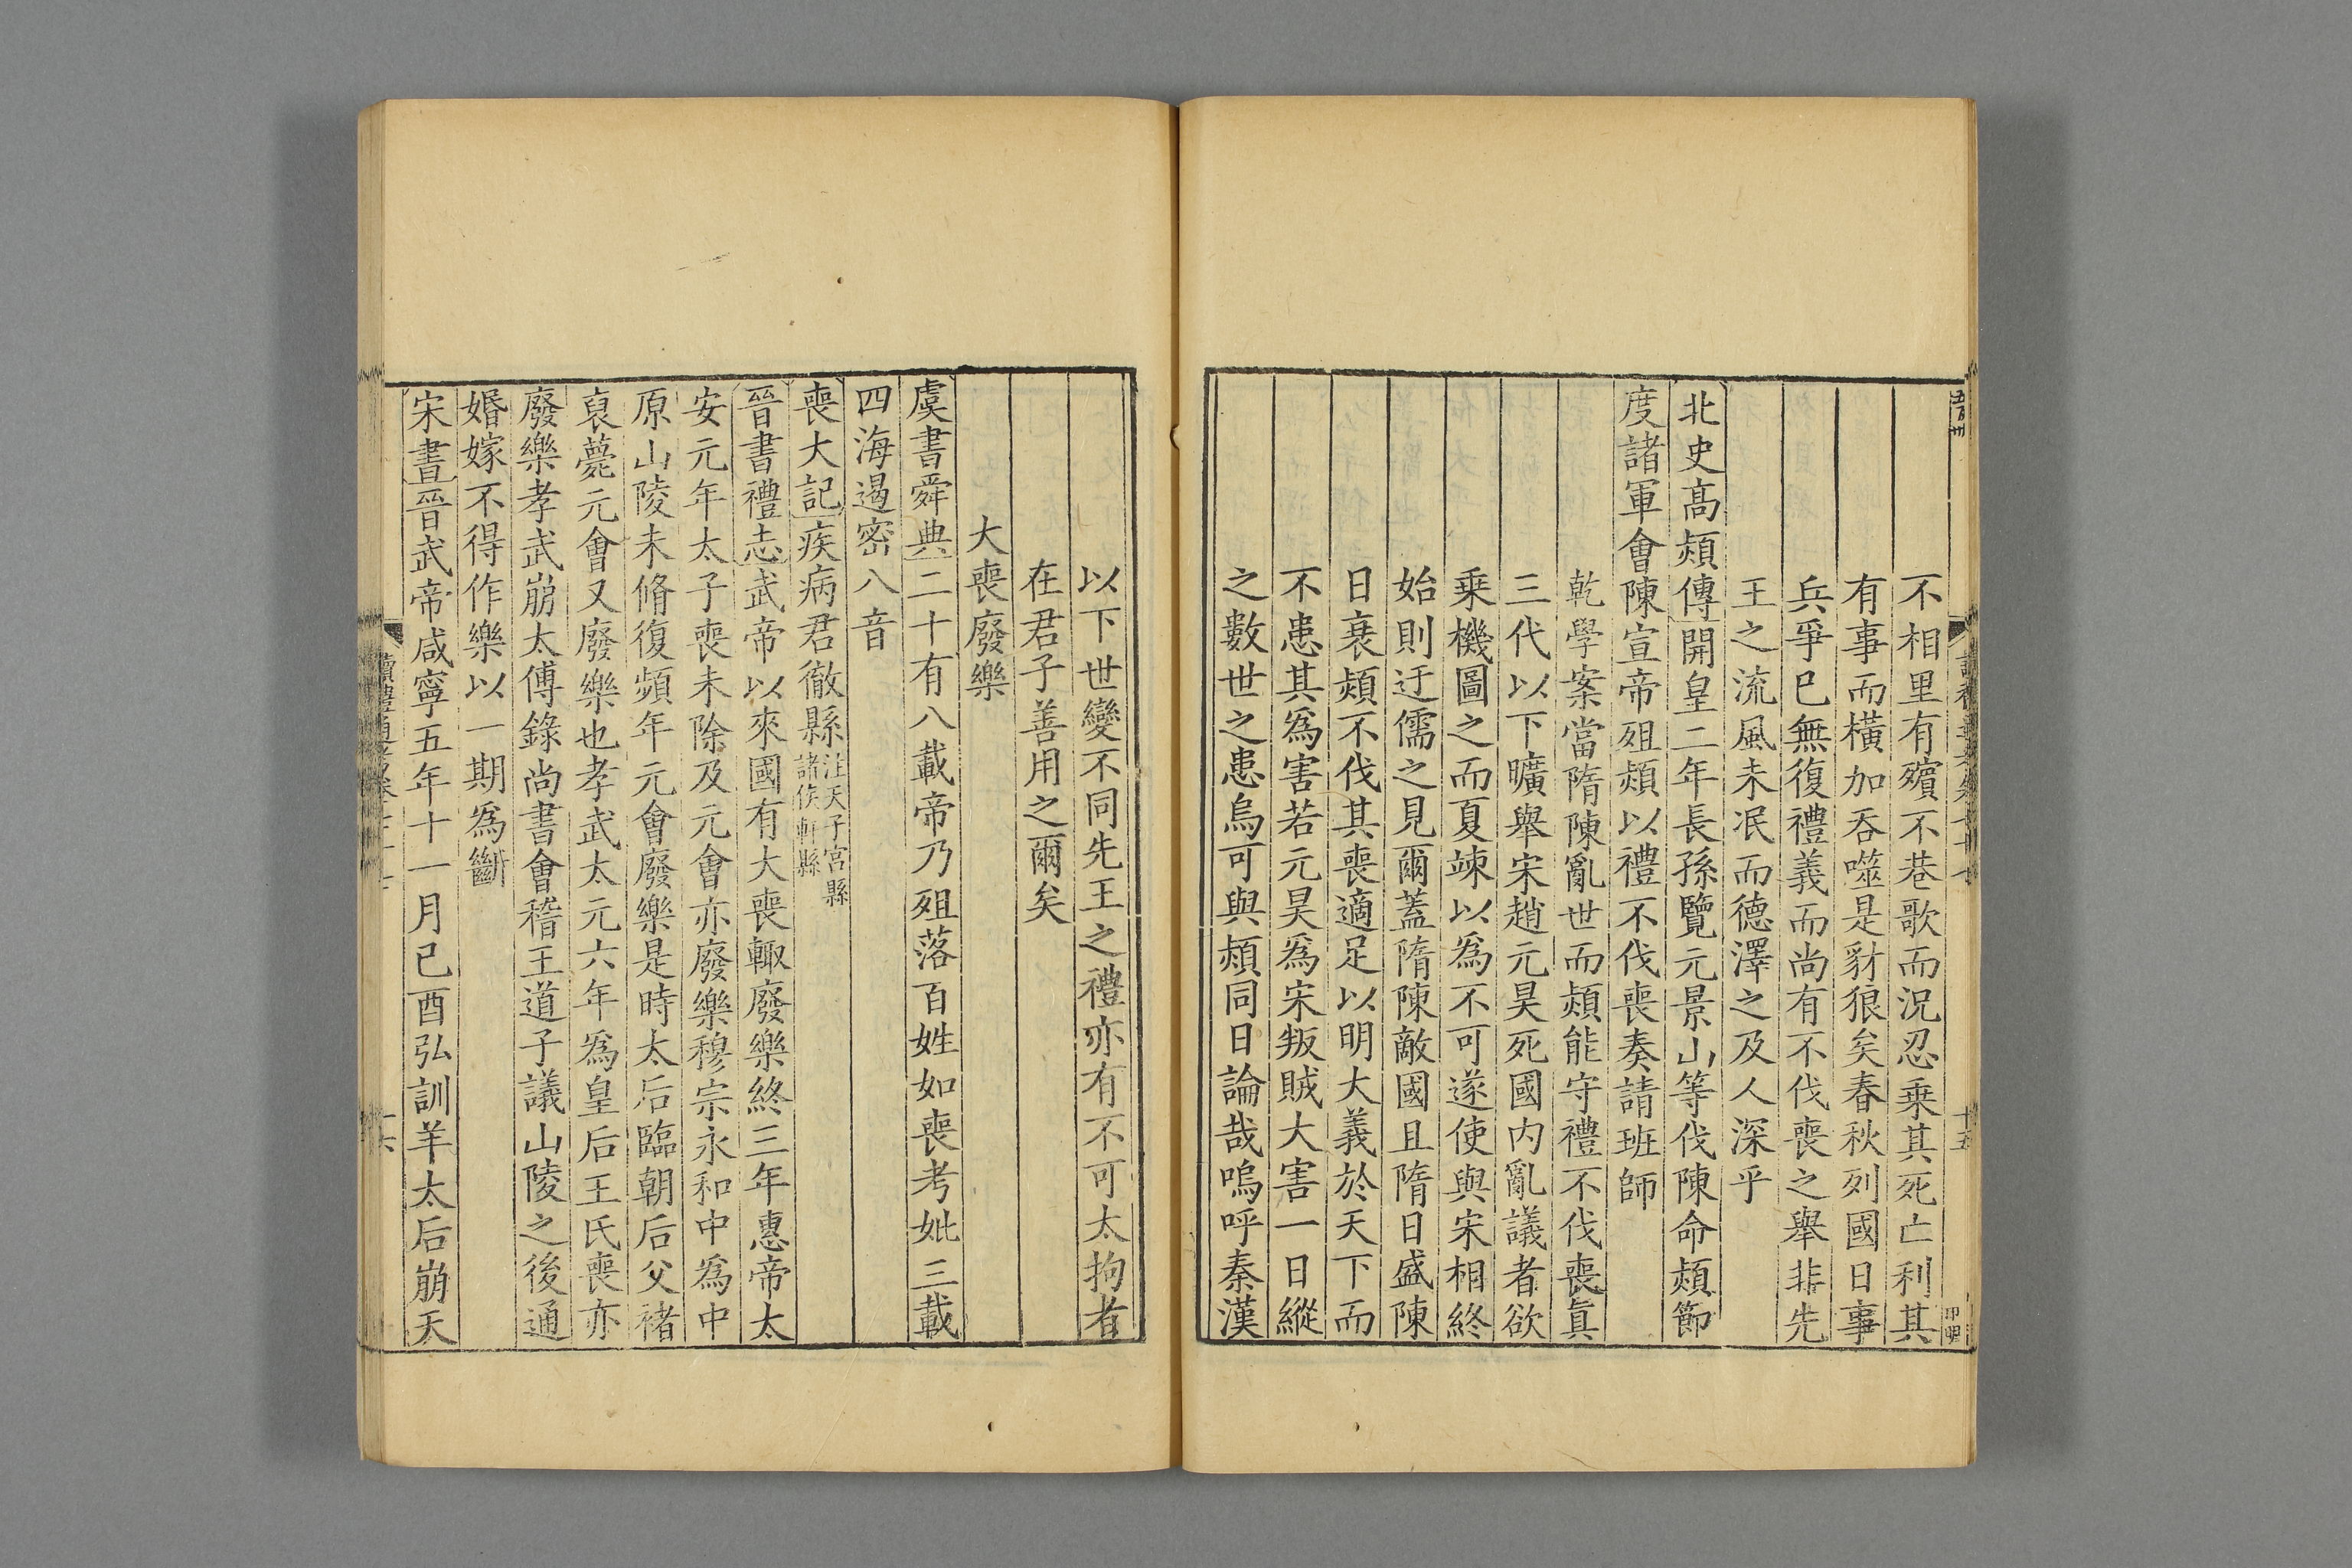 不相里有殯不巷歌而況忍乗其死亡利其
有事而橫加吞噬是豺狼矣春秋列國日事
兵爭已無復禮義而尚有不伐喪之舉非先
王之流風未泯而德澤之及人深乎
北史高熲傳開皇二年長孫覽元景山等伐陳命熲節
度諸軍會陳宣帝殂熲以禮不伐喪奏請班師
乾學案當隋陳亂世而熲能守禮不伐喪眞
三代以下曠舉宋趙元昊死國内亂議者欲
乗機圖之而夏竦以爲不可遂使與宋相終
始則迂儒之見爾蓋隋陳敵國且隋日盛陳
日衰熲不伐其喪適足以明大義於天下而
不患其爲害若元昊爲宋叛賊大害一日縱
之數世之患烏可與熲同日論哉嗚呼秦漢
十五
以下世變不同先王之禮亦有不可太拘者
在君子善用之爾矣
大喪廢樂
虞書舜典二十有八載帝乃殂落百姓如喪考妣三載
四海遏密八音
喪大記疾病君徹縣注天子宮縣
諸侯軒縣
晉書禮志武帝以來國有大喪輙廢樂終三年惠帝太
安元年太子喪未除及元會亦廢樂穆宗永和中爲中
原山陵未脩復頻年元會廢樂是時太后臨朝后父褚
裒薨元會又廢樂也孝武太元六年爲皇后王氏喪亦
廢樂孝武崩太傅錄尚書會稽王道子議山陵之後通
婚嫁不得作樂以一期爲斷
宋書晉武帝咸寧五年十一月己酉弘訓羊太后崩天
十六